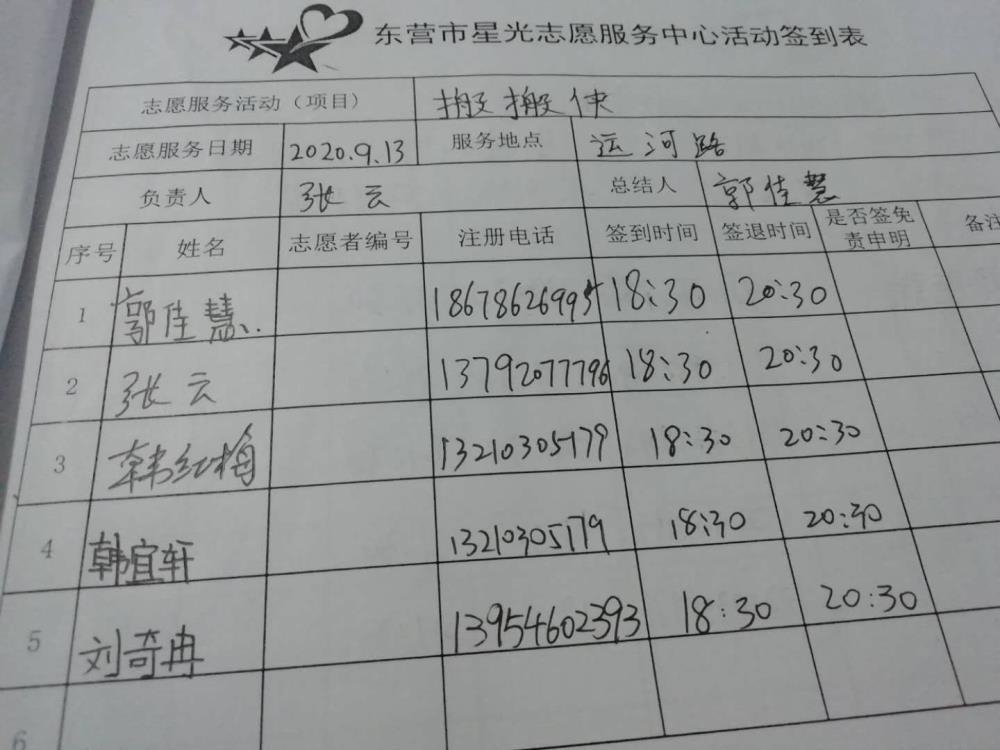 东营市星光志愿服务中心活动签到表
志愿服务活动（项目） 搬搬侠
志愿服务日期 2020.9.13 服务地点 运河路
负责人 张云 总结人 郭佳慧
序号 姓名 志愿者编号 注册电话 签到时间 签退时间 是否签免责申明 备注
1 郭佳慧 18678626995 18:30 20:30
2 张云 13792077796 18:30 20:30
3 韩红梅 13210305179 18:30 20:30
4 韩宜轩 13210305179 18:30 20:30
5 刘奇冉 13954602393 18:30 20:30
6